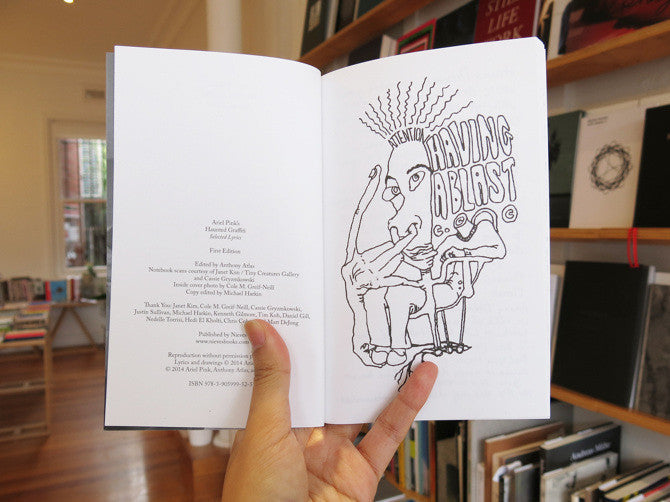 Ariel Pink's
Haunted Graffiti
Selected Lyrics
First Edition
Edited by Anthony Atlas
Notebook scans courtesy of Janet Kim / Tiny Creatures Gallery
and Cassie Gryzmkowski
Inside cover photo by Cole M. Greif-Neill
Copy edited by Michael Harkin
Thank You: Janet Kim, Cole M. Greif-Neill, Cassie Gryzmkowski,
Justin Sullivan, Michael Harkin, Kenneth Gilmore, Tim Koh, Daniel Gill,
Nedelle Torrisi, Hedi El Kholti, Chris Matt DeJong
Published by Nieves
www.nievesbooks.com
Reproduction without permission
Lyrics and drawings © 2014 Ariel
© 2014 Ariel Pink, Anthony Atlas,
ISBN 978-3-905999-32-
ATTENTION
HAVING
A BLAST
STILL
LIFE
WORK
Andreas